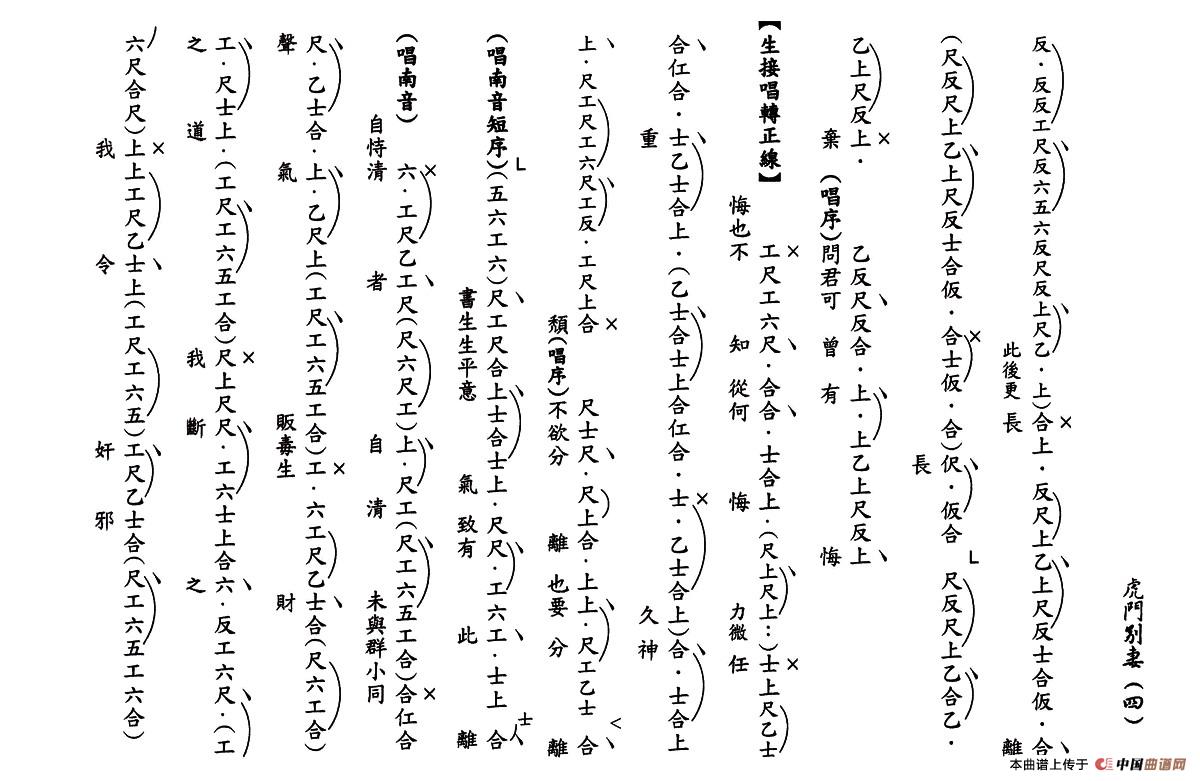 虎門別妻（四）
反．反反工尺反六五六反尺反上尺乙．上）合上．反尺上乙上尺反士合仮．合
此後更 長 離
（尺反尺上乙上尺反士合仮．合士仮．合）伬．仮合 尺反尺上乙合乙．
長
乙上尺反上． 乙反尺反合．上．上乙上尺反上
棄 （唱序）問君可 曾 有 悔
【生接唱轉正線】 工尺工六尺．合合．士合上．（尺上尺上：）士上尺乙士
悔也不 知 從何 悔 力微 任
合仁合．士乙士合上．（乙士合士上合仁合．士．乙士合上）合．士合上
重 久 神
上．尺工尺工六尺工反．工尺上合 尺士尺．尺上合．上上．尺工乙士 合
頹（唱序）不欲分 離 也要 分 離
（唱南音短序）（五六工六）尺工尺合上士合士上．尺尺．工六工．士上 合
書生生平意 氣 致有 此 離
（唱南音） 六．工尺乙工尺（尺六尺工）上．尺工（尺工六五工合）合仁合
自恃清 者 自 清 未與群小同
尺．乙士合．上．乙尺上（工尺工六五工合）工．六工尺乙士合（尺六工合）
聲 氣 販毒生 財
工．尺士上．（工尺工六五工合）尺上尺尺．工六士上合六．反工六尺．（工
之 道 我 斷 之
六尺合尺）上上工尺乙士上（工尺工六五）工尺乙士合（尺工六五工六合）
我 令 奸 邪
本曲谱上传于 中国曲谱网